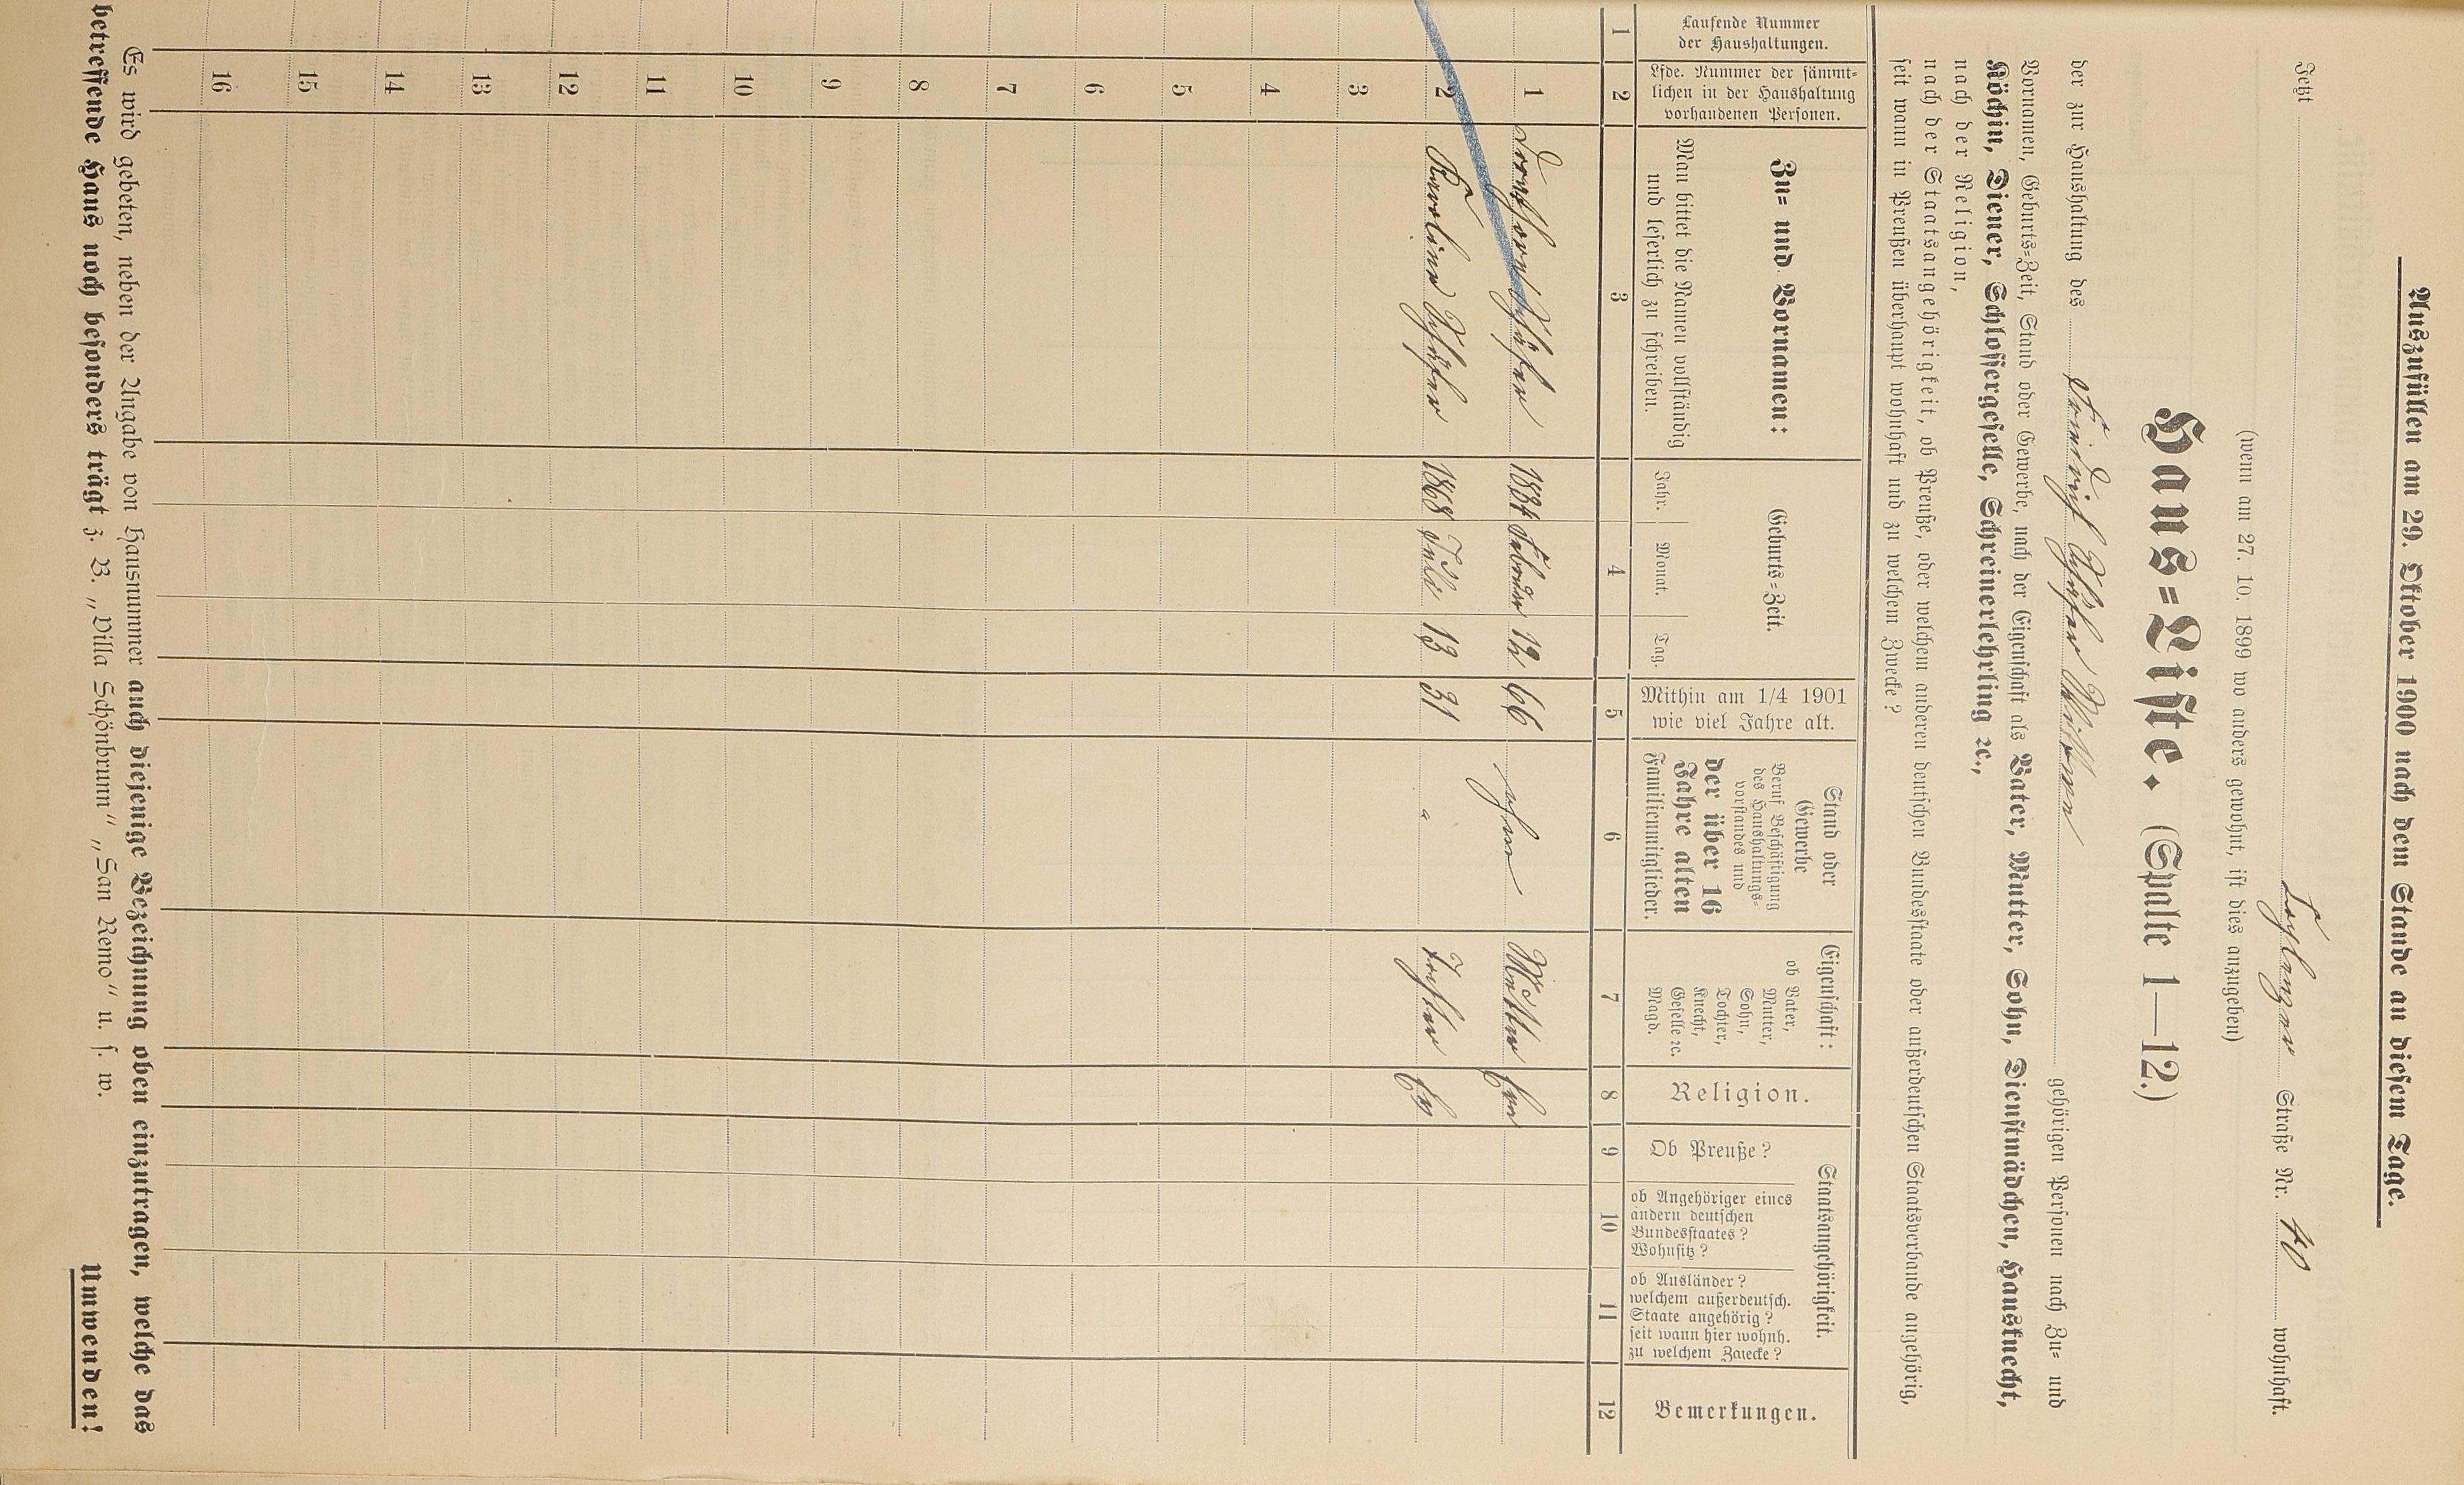 Auszufüllen am 29. Oktober 1900 nach dem Stande an diesem Tage.
Jetzt Straße Nr. 40 wohnhaft.
(wenn am 27. 10. 1899 wo anders gewohnt, ist dies anzugeben)
Haus=Liste. (Spalte 1—12.)
der zur Haushaltung des Friedrich Schäfer Wittwe gehörigen Personen nach Zu= und
Vornamen, Geburts=Zeit, Stand oder Gewerbe, nach der Eigenschaft als Vater, Mutter, Sohn, Dienstmädchen, Hausknecht,
Köchin, Diener, Schlossergeselle, Schreinerlehrling ꝛc.,
nach der Religion,
nach der Staatsangehörigkeit, ob Preuße, oder welchem anderen deutschen Bundesstaate oder außerdeutschen Staatsverbande angehörig,
seit wann in Preußen überhaupt wohnhaft und zu welchem Zwecke?
Laufende Nummer
der Haushaltungen.
Lfde. Nummer der sämmt=
lichen in der Haushaltung
vorhandenen Personen.
Zu= und Vornamen:
Man bittet die Namen vollständig
und leserlich zu schreiben.
Geburts=Zeit.
Jahr. Monat. Tag.
Mithin am 1/4 1901
wie viel Jahre alt.
Stand oder
Gewerbe
Beruf Beschäftigung
des Haushaltungs=
vorstandes und
der über 16
Jahre alten
Familienmitglieder.
Eigenschaft:
ob Vater,
Mutter,
Sohn,
Tochter,
Knecht,
Geselle ꝛc.
Magd.
Religion.
Staatsangehörigkeit.
Ob Preuße?
ob Angehöriger eines
andern deutschen
Bundesstaates?
Wohnsitz?
ob Ausländer?
welchem außerdeutsch.
Staate angehörig?
seit wann hier wohnh.
zu welchem Zwecke?
Bemerkungen.
1 2 3 4 5 6 7 8 9 10 11 12
1 Schäfer 1834 Februar 12 66 ohne Mutter Ev
2 Karoline Schäfer 1868 Juli 13 31 " Tochter Ev
3
4
5
6
7
8
9
10
11
12
13
14
15
16
Es wird gebeten, neben der Angabe von Hausnummer auch diejenige Bezeichnung oben einzutragen, welche das
betreffende Haus noch besonders trägt z. B. „Villa Schönbrunn" „San Remo" u. s. w.
Umwenden!